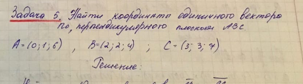 Задача 5. Найти координаты единичного вектора
n₀, перпендикулярного плоскости ABC
A=(0;1;6), B=(2;2;4), C=(5;3;7)
Решение: